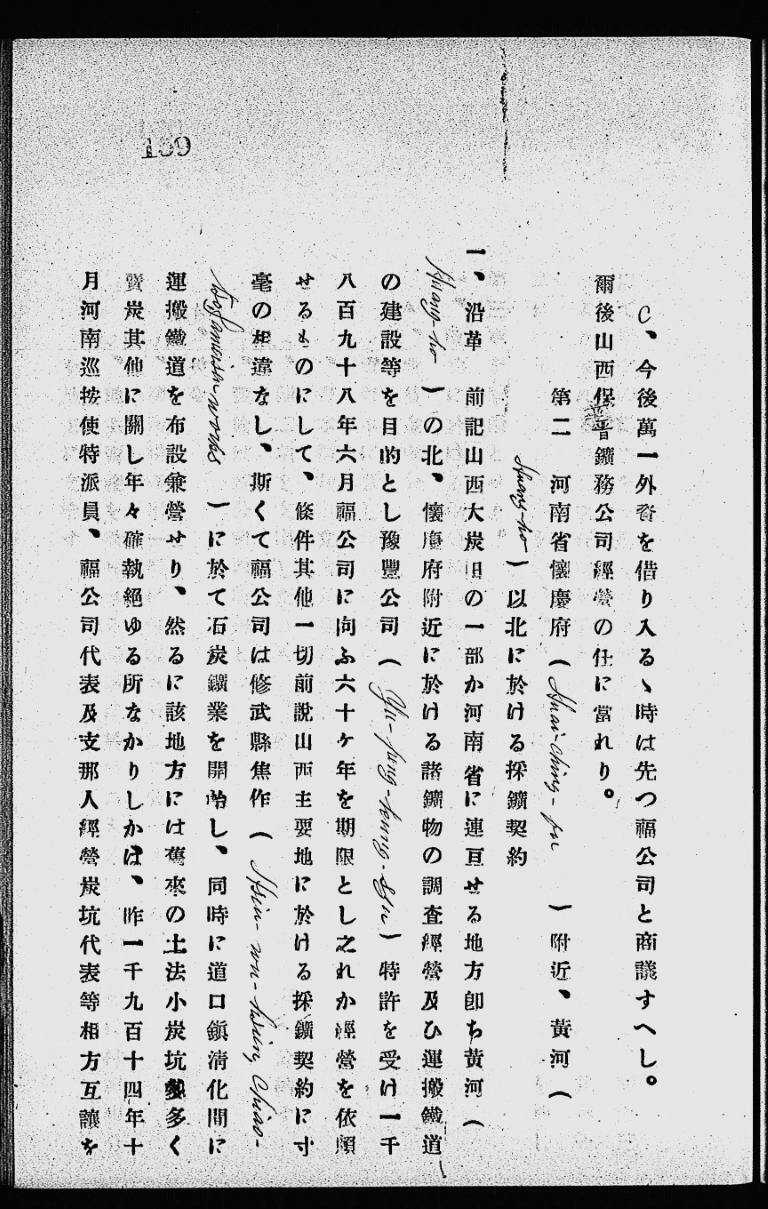 109
C、今後萬一外資を借り入るゝ時は先つ福公司と商議すへし。
爾後山西保晋鑛務公司經營の任に當れり。
第二　河南省懷慶府（Huai-ching-fu）附近、黃河（
Huang-ho）以北に於ける採鑛契約
一、沿革　前記山西大炭田の一部か河南省に連亘せる地方卽ち黃河（
Huang-ho）の北、懷慶府附近に於ける諸鑛物の調査經營及ひ運搬鐵道
の建設等を目的とし豫豐公司（Yu-fung-kung-szu）特許を受け一千
八百九十八年六月福公司に向ふ六十ケ年を期限とし之れか經營を依賴
せるものにして、條件其他一切前說山西主要地に於ける採鑛契約に寸
毫の相違なし、斯くて福公司は修武縣焦作（Hsiu-wu-hsien, Chiao-
）に於て石炭鑛業を開始し、同時に道口鎭淸化間に
運搬鐵道を布設兼營せり、然るに該地方には舊來の土法小炭坑多く
賣炭其他に關し年々確執絕ゆる所なかりしかば、昨一千九百十四年十
月河南巡按使特派員、福公司代表及支那人經營炭坑代表等相方互讓を